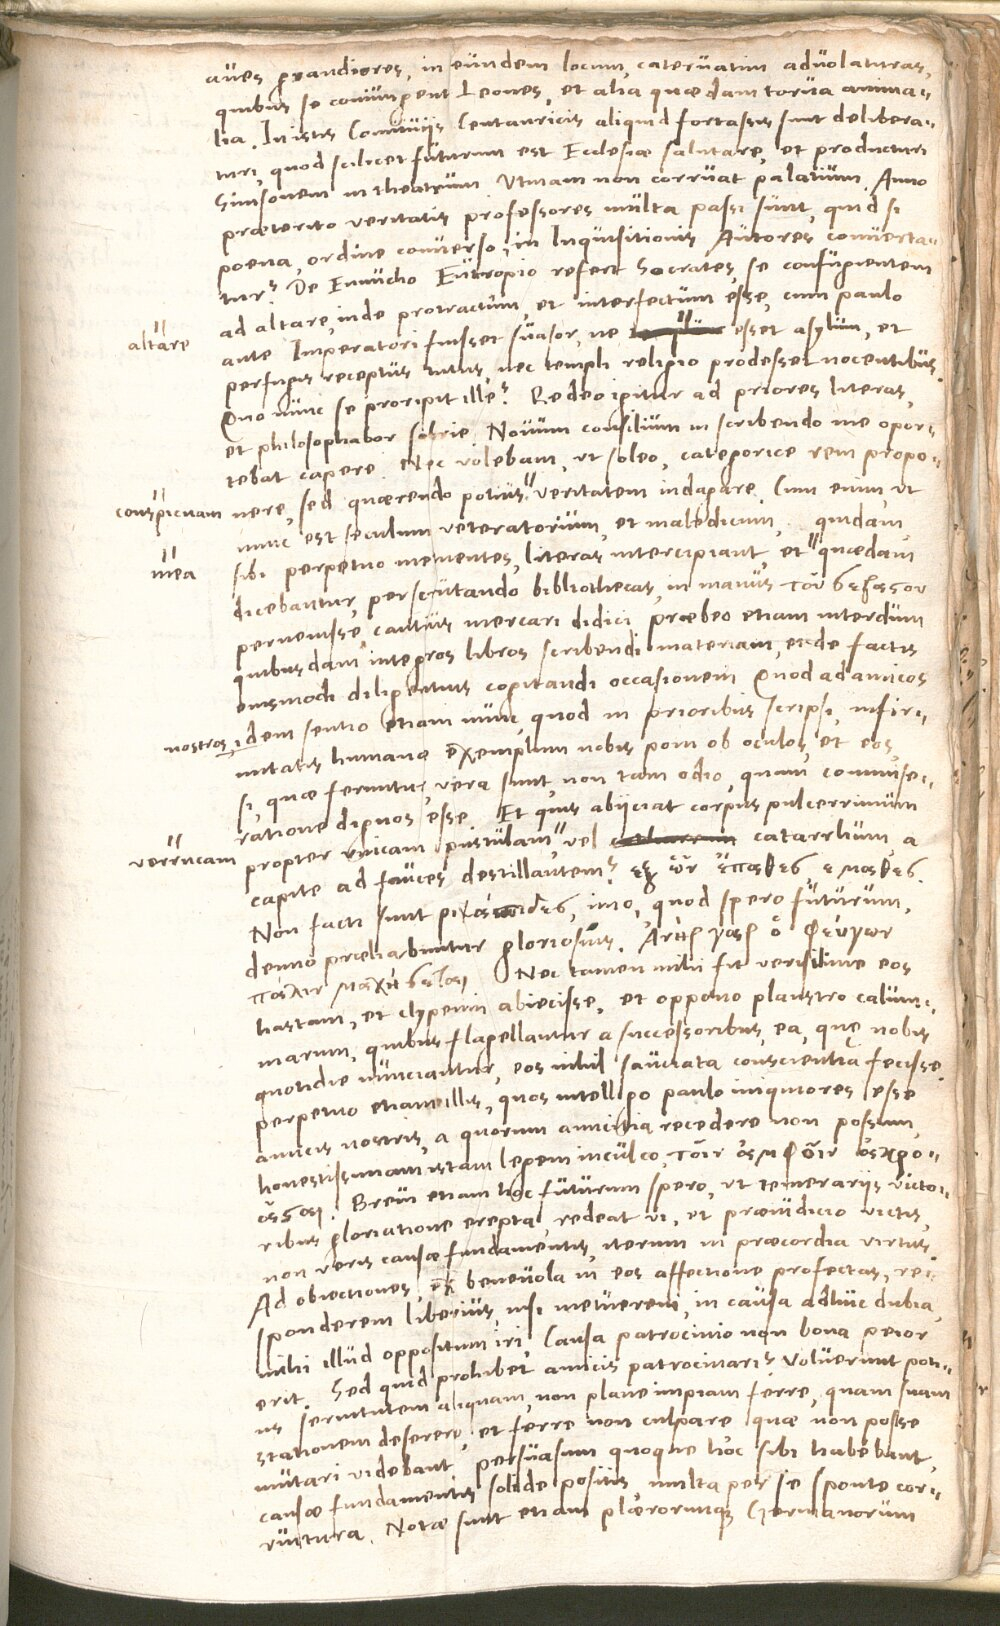 aves grandiores, in eundem locum, catervatim advolaturas,
quibus se coniungent Leones, et alia quædam torva anima=
lia. In istis Conviviis Centauricis aliquid fortassis sunt delibera=
turi, quod scilicet futurum est Ecclesiæ salutare, et producturi
Simsonem in theatrum Utinam non corruat palatium. Anno
præterito veritatis professores multa passi sunt, quid si
poena, ordine converso, in Inquisitionis Autores converta=
tur? De Eunucho Eutropio refert Socrates, se confugientem
ad altare, inde protractum, et interfectum esse, cum paulo
altare
ante Imperatori fuisset suasor, ne esset asylum, et
perfugis receptus tutus, nec templi religio prodesset nocentibus.
Quo nunc se proripit ille? Redeo igitur ad priores literas,
et philosophabor sobrie. Novum consilium in scribendo me opor=
tebat capere. Nec volebam, ut soleo, categorice rem propo=
conspicuam
nere, sed quærendo potius veritatem indagare. Cum enim, ut
nunc est seculum veteratorium, et maledicum, quidam
mea
sibi perpetuo metuentes, literas intercipiant, et quædam
dicebantur, perscrutando bibliothecas, in manus τοῦ
pervenisse, cautius mercari didici præbeo etiam interdum
quibusdam integros libros scribendi materiam, et de factis
eiusmodi diligentius cogitandi occasionem Quod ad amicos
nostros, idem sentio etiam nunc, quod in prioribus scripsi, infir=
mitatis humanæ exemplum nobis poni ob oculos, et eos,
si, quæ feruntur, vera sunt, non tam odio, quam commise=
ratione dignos esse. Et quis abiiciat corpus pulcerrimum
verrucam
propter unicam pustulam, vel catarrhum, a
capite ad fauces destillantem?
Non facti sunt imo, quod spero futurum,
denuo præliabuntur gloriosius. Ἀνὴρ γὰρ ὁ φεύγων
πάλιν μαχήσεται Nec tamen mihi fit verisimile eos
hastam, et clypeum abiecisse, et oppono plaustro calum=
niarum, quibus flagellantur a successoribus, ea, quę nobis
quotidie nunciantur, eos nihil sauciata conscientia fecisse.
perpetuo etiam illis, quos intelligo paulo iniquiores esse
amicis nostris, a quorum amicitia recedere non possum,
honestissimam istam legem inculco, τοῖν ἀμφοῖν ἀκρο=
ᾶσθαι. Brevi etiam hoc futurum spero, ut temerariis victo=
ribus gloriatione erepta, redeat vi, et præiudicio victis,
non veris causæ fundamentis, iterum in præcordia virtus.
Ad obiectiones, ex benevola in eos affectione profectas, re=
sponderem liberius, nisi metuerem, in causa adhuc dubia,
mihi illud oppositum iri, Causa patrocinio non bona peior
erit. Sed quid prohibet amicis patrocinari? Voluerunt poti=
us servitutem aliquam, non plane impiam ferre, quam suam
stationem deserere, et ferre non culpare quæ non posse
mutari videbant, persuasum quoque hoc sibi habebant,
causæ fundamentis solide positis, multa per se sponte cor=
ruitura. Notæ sunt etiam plærorumque Germanorum